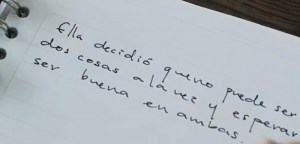 Ella decidió que no puede ser
dos cosas a la vez y esperar
ser buena en ambas.